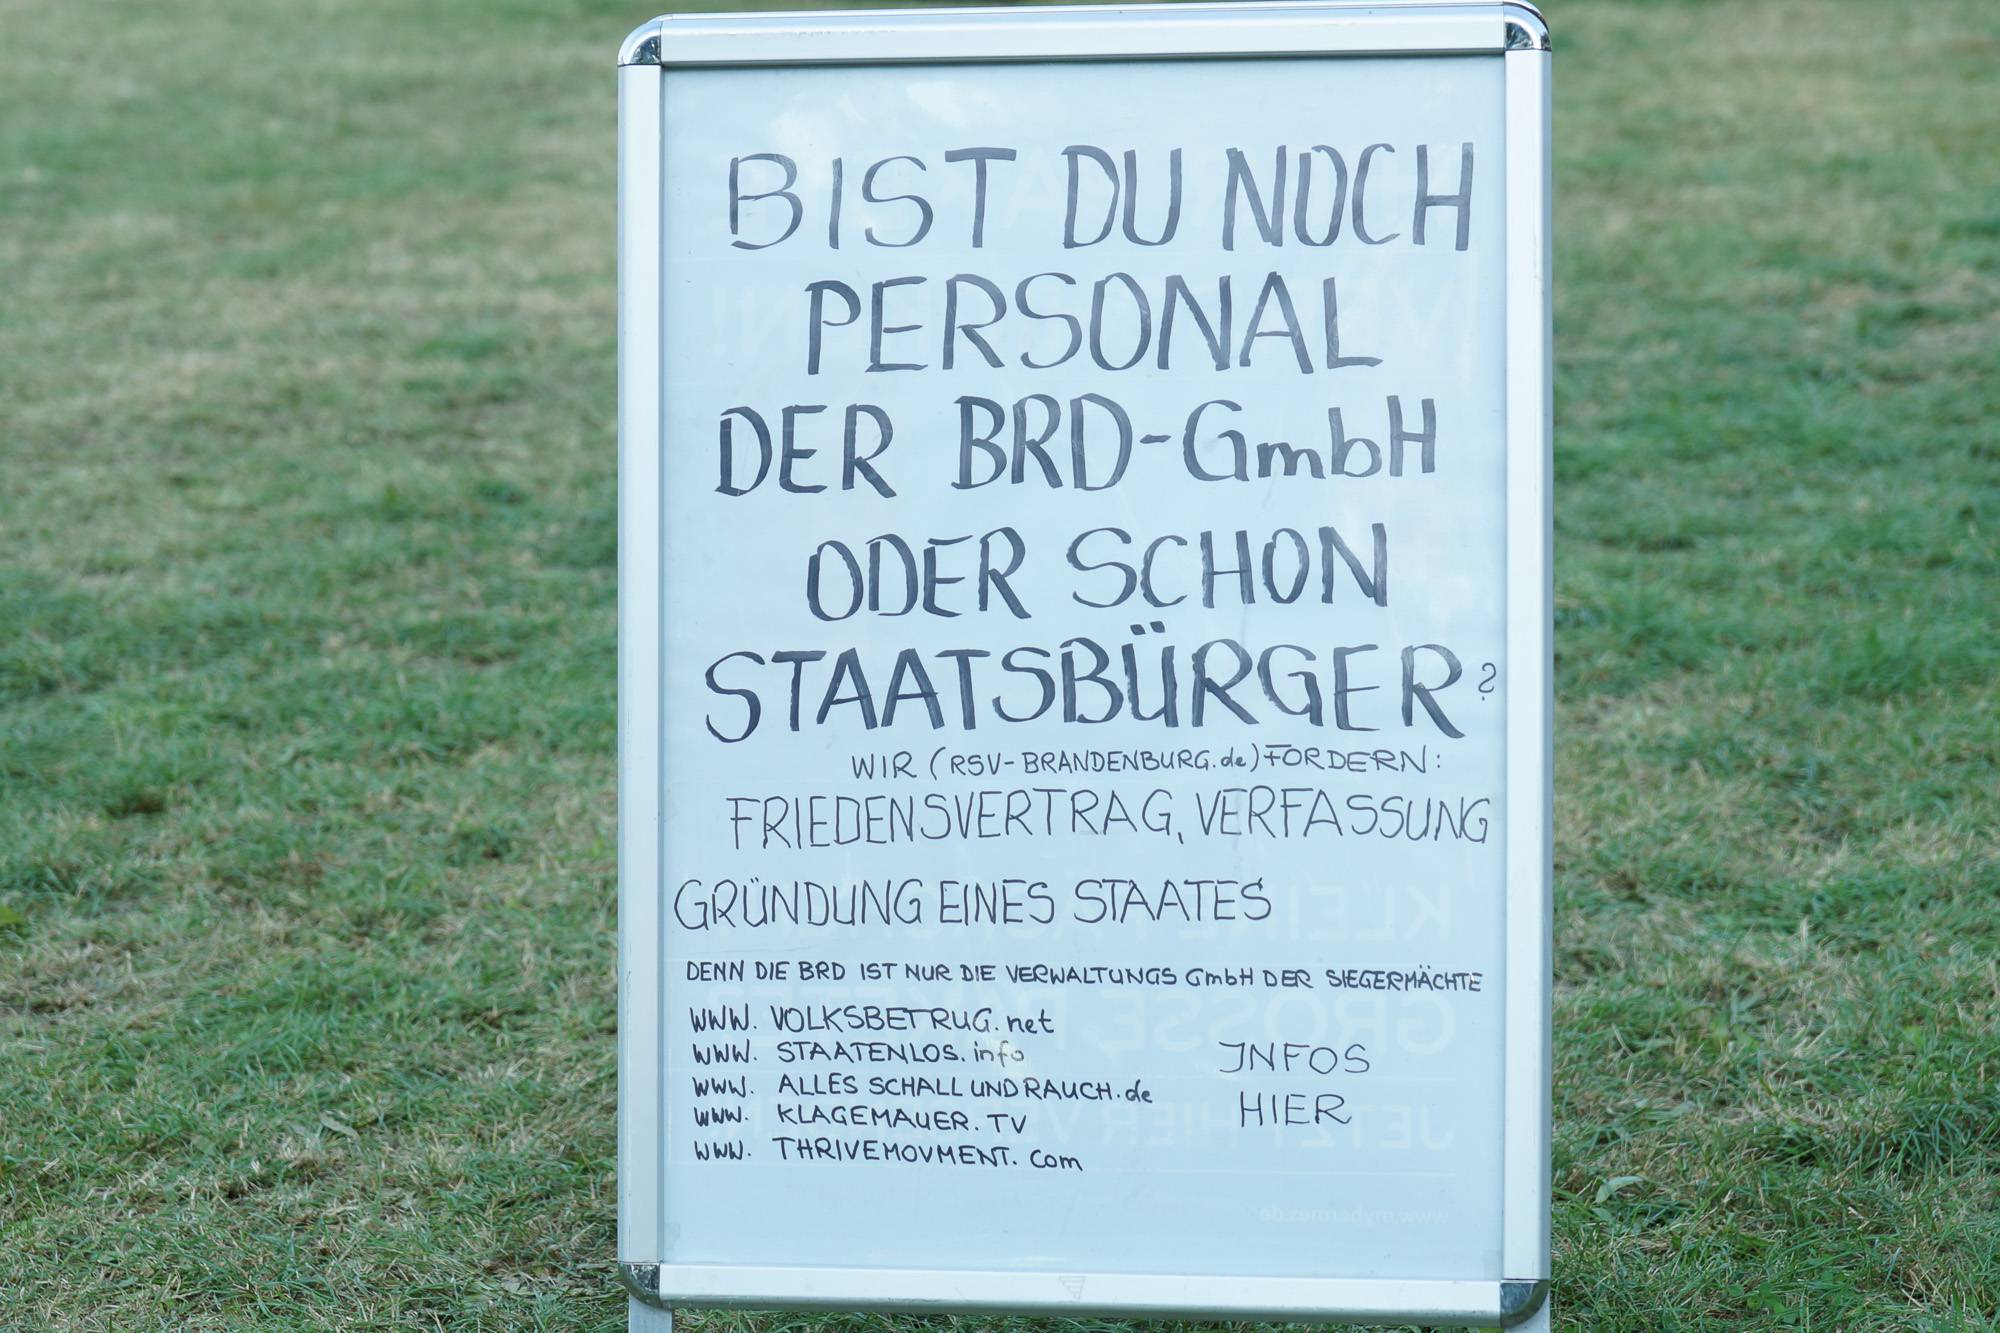 BIST DU NOCH
PERSONAL
DER BRD-GmbH
ODER SCHON
STAATSBÜRGER?
WIR (RSV-BRANDENBURG.de) FORDERN:
FRIEDENSVERTRAG, VERFASSUNG
GRÜNDUNG EINES STAATES
DENN DIE BRD IST NUR DIE VERWALTUNGS GmbH DER SIEGERMÄCHTE
WWW. VOLKSBETRUG.net
WWW. STAATENLOS.info
WWW. ALLES SCHALL UND RAUCH.de
WWW. KLAGEMAUER.TV
WWW. THRIVEMOVMENT.com
INFOS
HIER
www.myhermes.de